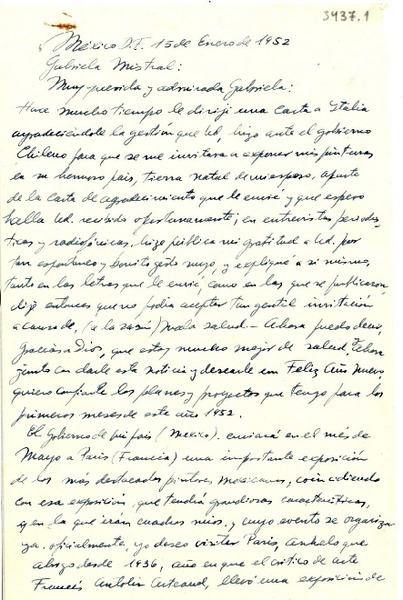 3437.1
México D.F. 15 de Enero de 1952
Gabriela Mistral:
Muy querida y admirada Gabriela:
Hace mucho tiempo le dirijí una carta a Italia
agradeciéndole la gestión que Ud. hizo ante el gobierno
Chileno para que se me invitara a exponer mis pinturas
en su hermoso país, tierra natal de mi esposo, aparte
de la carta de agradecimiento que le envié y que espero
halla Ud. recibido oportunamente; en entrevistas periodís-
ticas y radiofónicas, hize pública mi gratitud a Ud. por
tan espontáneo y bonito gesto suyo, y expliqué a si mismo,
tanto en las letras que le envié, como en las que se publicaron,
dije entonces que no podía aceptar tan gentil invitación
a causa de, (a la sazón) mala salud - Ahora puedo decir,
gracias a Dios, que estoy mucho mejor de salud. Ahora
junto con darle esta noticia y desearle un Feliz Año Nuevo,
quiero confiarle los planes y proyectos que tengo para los
primeros meses de este año 1952.
El Gobierno de mi país (Mexico). enviará en el mes de
Mayo a París (Francia) una importante exposición
de los más destacados pintores mexicanos, coincidiendo
con esa exposición, que tendrá grandiosas características,
y en la que irán cuadros míos, y cuyo evento se organiza
ya oficialmente, yo deseo visitar París, anhelo que
abrigo desde 1936, año en que el crítico de arte
Francés Antolin Arteaud, llevó una exposición de